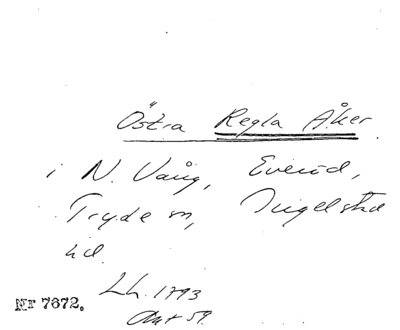 Östra Regla Åker
i N. Vång, Everöd,
Tryde sn, Ingelstad
hd.
Lh. 1793
Akt 59.
Nr 7672.